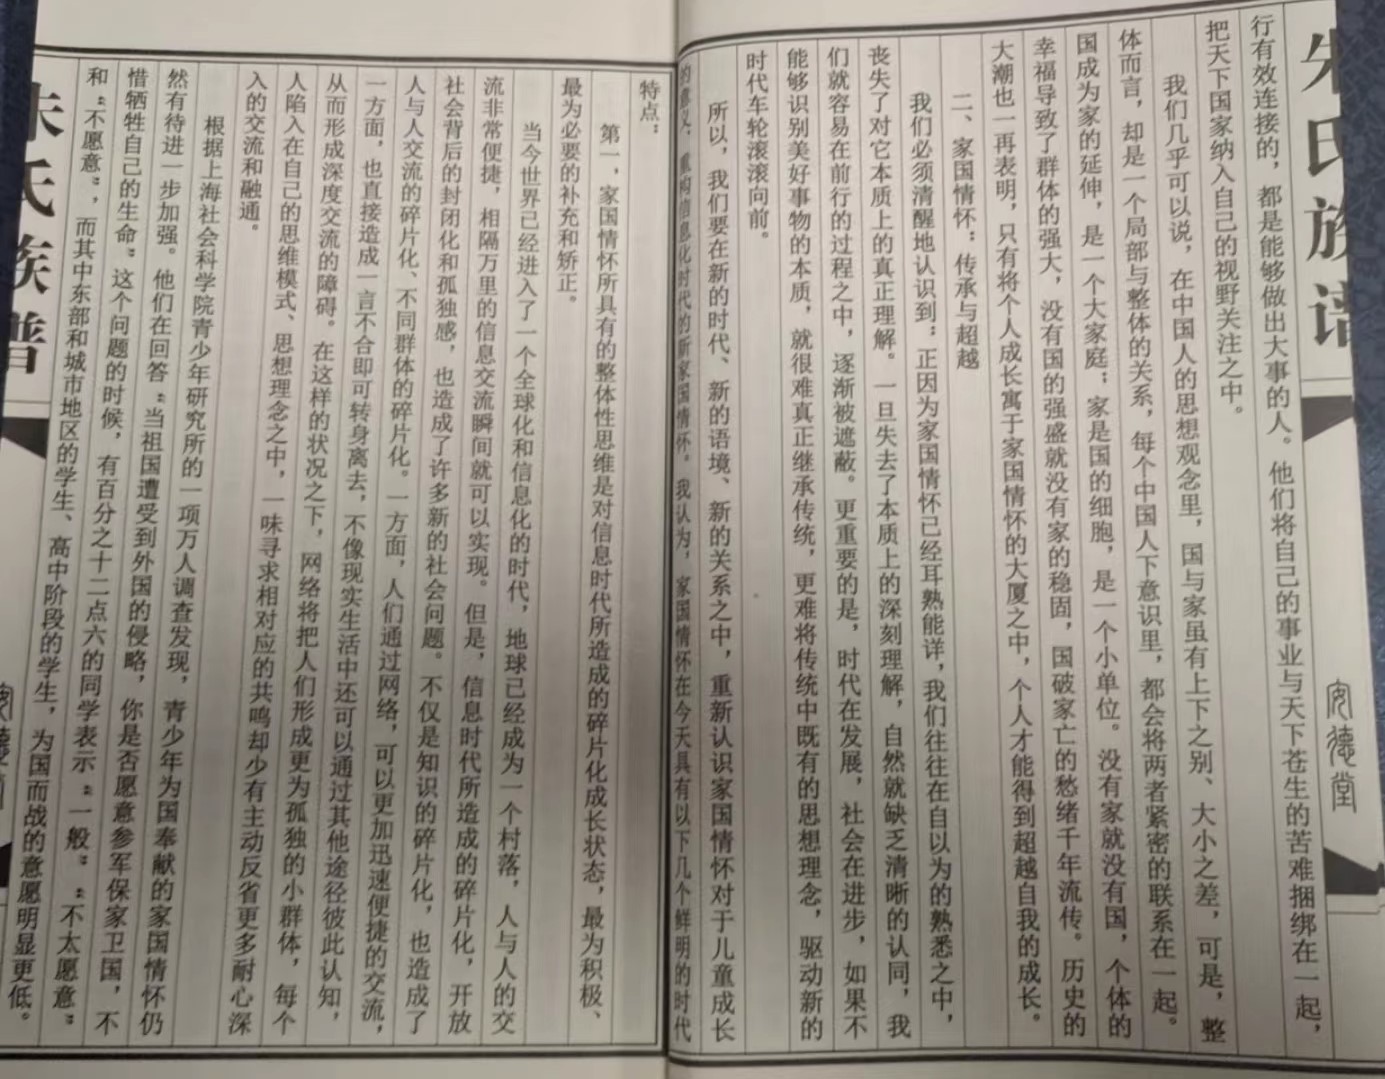 朱氏族谱
安德堂
行有效连接的，都是能够做出大事的人。他们将自己的事业与天下苍生的苦难捆绑在一起，
把天下国家纳入自己的视野关注之中。
我们几乎可以说，在中国人的思想观念里，国与家虽有上下之别、大小之差，可是，整
体而言，却是一个局部与整体的关系，每个中国人下意识里，都会将两者紧密的联系在一起。
国成为家的延伸，是一个大家庭；家是国的细胞，是一个小单位。没有家就没有国，个体的
幸福导致了群体的强大，没有国的强盛就没有家的稳固，国破家亡的愁绪千年流传。历史的
大潮也一再表明，只有将个人成长寓于家国情怀的大厦之中，个人才能得到超越自我的成长。
二、家国情怀：传承与超越
我们必须清醒地认识到：正因为家国情怀已经耳熟能详，我们往往在自以为的熟悉之中，
丧失了对它本质上的真正理解。一旦失去了本质上的深刻理解，自然就缺乏清晰的认同，我
们就容易在前行的过程之中，逐渐被遮蔽。更重要的是，时代在发展，社会在进步，如果不
能够识别美好事物的本质，就很难真正继承传统，更难将传统中既有的思想理念，驱动新的
时代车轮滚滚向前。
所以，我们要在新的时代、新的语境、新的关系之中，重新认识家国情怀对于儿童成长
的意义，重构信息化时代的新家国情怀。我认为，家国情怀在今天具有以下几个鲜明的时代
特点：
第一，家国情怀所具有的整体性思维是对信息时代所造成的碎片化成长状态，最为积极、
最为必要的补充和矫正。
当今世界已经进入了一个全球化和信息化的时代，地球已经成为一个村落，人与人的交
流非常便捷，相隔万里的信息交流瞬间就可以实现。但是，信息时代所造成的碎片化，开放
社会背后的封闭化和孤独感，也造成了许多新的社会问题。不仅是知识的碎片化，也造成了
人与人交流的碎片化、不同群体的碎片化。一方面，人们通过网络，可以更加迅速便捷的交流，
一方面，也直接造成一言不合即可转身离去，不像现实生活中还可以通过其他途径彼此认知，
从而形成深度交流的障碍。在这样的状况之下，网络将把人们形成更为孤独的小群体，每个
人陷入在自己的思维模式、思想理念之中，一味寻求相对应的共鸣却少有主动反省更多耐心深
入的交流和融通。
根据上海社会科学院青少年研究所的一项万人调查发现，青少年为国奉献的家国情怀仍
然有待进一步加强。他们在回答“当祖国遭受到外国的侵略，你是否愿意参军保家卫国，不
惜牺牲自己的生命”这个问题的时候，有百分之十二点六的同学表示“一般”“不太愿意”
和“不愿意”，而其中东部和城市地区的学生、高中阶段的学生，为国而战的意愿明显更低。
朱氏族谱